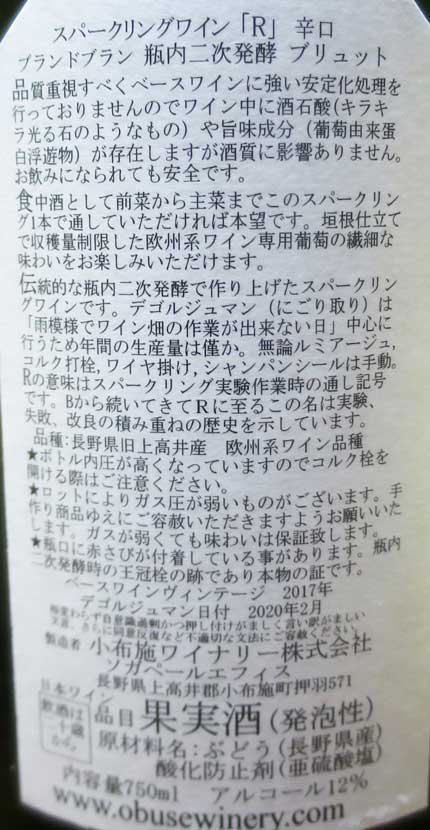 スパークリングワイン「R」 辛口
ブランドブラン 瓶内二次発酵 ブリュット
品質重視すべくベースワインに強い安定化処理を
行っておりませんのでワイン中に酒石酸(キラキ
ラ光る石のようなもの)や旨味成分(葡萄由来蛋
白浮遊物)が存在しますが酒質に影響ありません。
お飲みになられても安全です。
食中酒として前菜から主菜までこのスパークリン
グ1本で通していただければ本望です。垣根仕立て
で収穫量制限した欧州系ワイン専用葡萄の繊細な
味わいをお楽しみいただけます。
伝統的な瓶内二次発酵で作り上げたスパークリン
グワインです。デゴルジュマン(にごり取り)は
「雨模様でワイン畑の作業が出来ない日」中心に
行うため年間の生産量は僅か。無論ルミアージュ,
コルク打栓,ワイヤ掛け,シャンパンシールは手動。
Rの意味はスパークリング実験作業時の通し記号
です。Bから続いてきてRに至るこの名は実験、
失敗、改良の積み重ねの歴史を示しています。
品種:長野県旧上高井産 欧州系ワイン品種
★ボトル内圧が高くなっていますのでコルク栓を
開ける際はご注意ください。
★ロットによりガス圧が弱いものがございます。手
作り商品ゆえにご容赦いただきますようお願いいた
します。ガスが弱くても味わいは保証致します。
★瓶口に赤さびが付着している事があります。瓶内
二次発酵時の王冠栓の跡であり本物の証です。
ベースワインヴィンテージ 2017年
デゴルジュマン日付 2020年2月
相変わらず自意識過剰かつ押し付けがましく言い訳がましい
文言、さらに同意反復など不適切な文法にご容赦ください
製造者 小布施ワイナリー株式会社
ソガペールエフィス
長野県上高井郡小布施町押羽571
日本ワイン
飲酒は
二十歳
から。
品目 果実酒(発泡性)
原材料名:ぶどう(長野県産)
酸化防止剤(亜硫酸塩)
内容量750ml アルコール12%
www.obusewinery.com